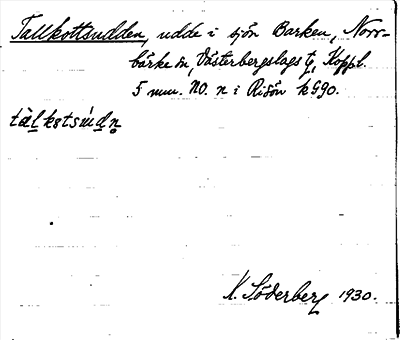 Tallkottsudden, udde i sjön Barken, Norr-
bärke sn, Västerbergslags tg, Koppl.
5 mm. NO. n i Risön k 990.
K. Söderberg 1930.